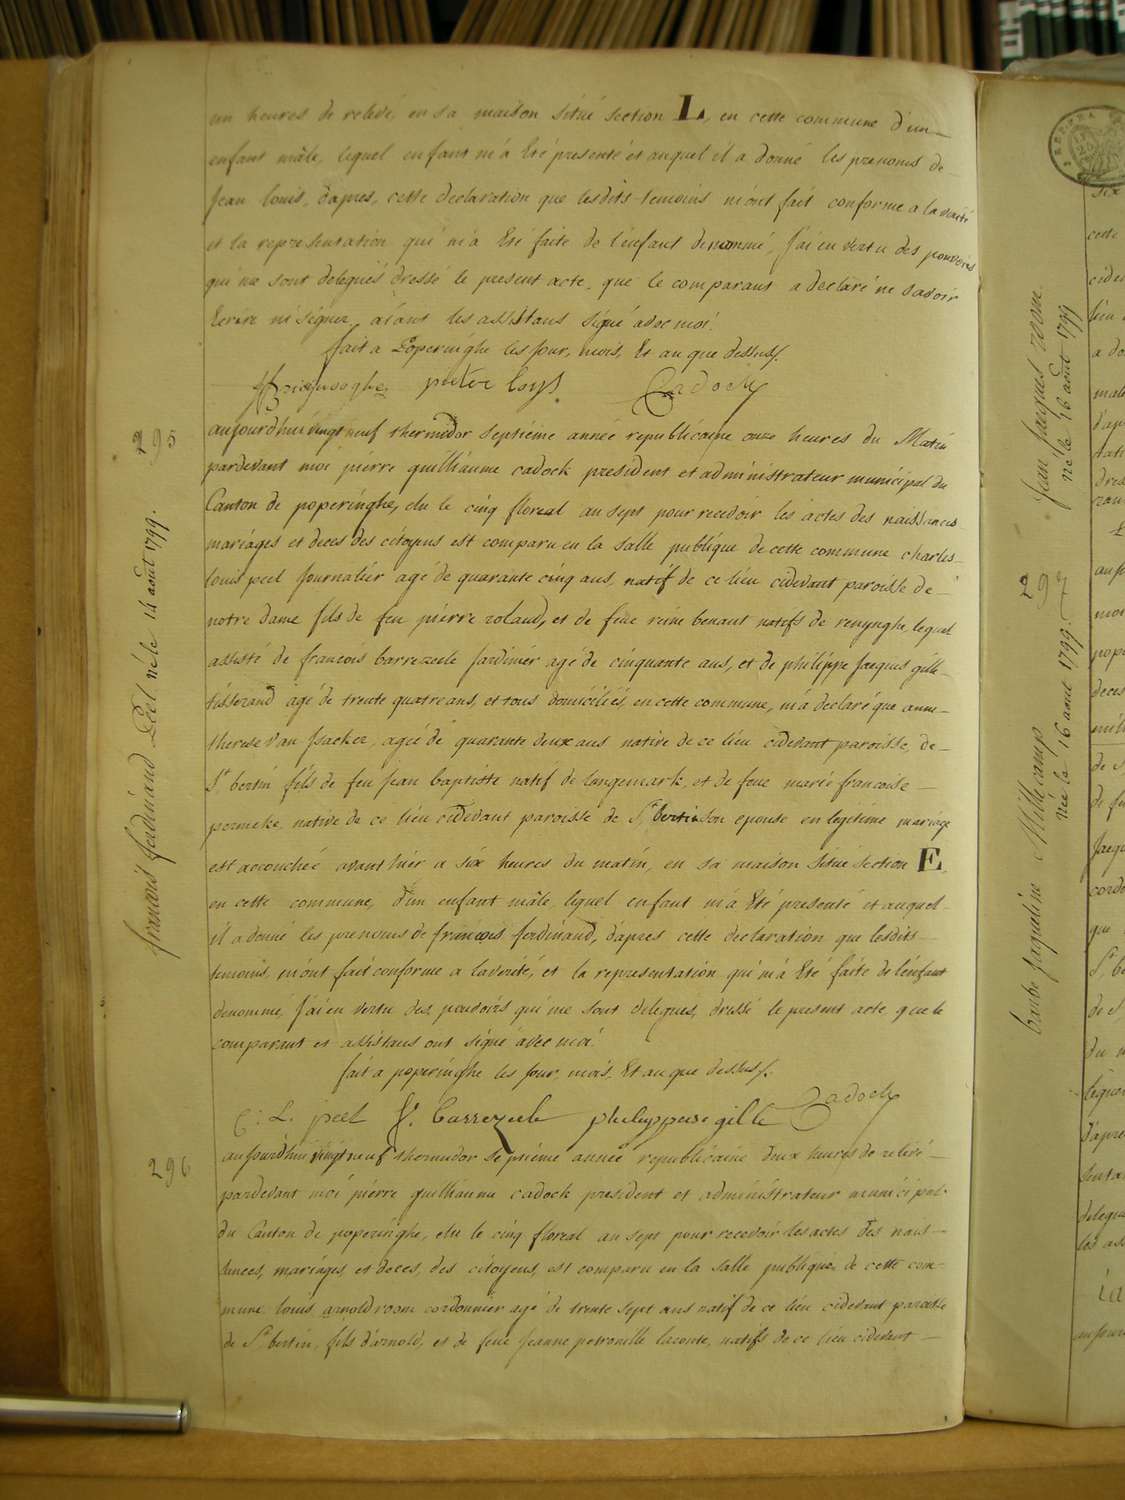 un heures de relevé, en sa maison situé section L, en cette commune d'un
enfant mâle, lequel enfant m'a Eté presenté et auquel il a donné les prenoms de
Jean louis, d'apres, cette declaration que lesdits temoins m'ont fait conforme a la verité
et la representation qui m'a Eté faite de l'enfant denommé, J'ai en vertu des pouvoirs
qui me sont delegués dressé le present acte, que le comparant a declaré ne savoir
Ecrire ni signer, aïant les assistans signé avec moi.
fait a Poperinghe les jour, mois, Et an que dessus.
pieter Cadock
295
aujourdhui vingt neuf thermidor septiéme année republicaine onze heures du Matin
pardevant moi pierre guilliaume cadock president et administrateur municipal du
Canton de poperinghe, elu le cinq floreal an sept pour recevoir les actes des naissances
mariages et deces des citoyens est comparu en la salle publique de cette commune charles
louis peel journalier agé de quarante cinq ans, natif de ce lieu cidevant paroisse de
notre dame fils de feu pierre roland, et de feue reine benaut natifs de renynghe, lequel
assisté de francois barrezeele jardinier agé de cinquante ans, et de philippe jacques gille
tisserand agé de trente quatre ans, et tous domiciliés, en cette commune, m'a declaré que anne
therese Van Isacker, agée de quarante deux ans native de ce lieu cidevant paroisse, de
St bertin fils de feu jean baptiste natif de langemark, et de feue marie francoise
perneke, native de ce lieu cidevant paroisse de St bertin son epouse en legitime mariage
est accouchée avant hier a six heures du matin, en sa maison situé section E,
en cette commune, d'un enfant mâle, lequel enfant m'a Eté presenté et auquel
il a donné les prenoms de françois ferdinand, d'apres cette declaration que lesdits
temoins, m'ont fait conforme a la verité, et la representation qui m'a Eté faite de l'enfant
denommé, J'ai en vertu des pouvoirs qui me sont delegues, dressé le present acte que le
comparant et assistans ont signé avec moi.
fait a poperinghe les jour, mois, Et an que dessus.
C: L. peel f. barrezeele philippus gille Cadock
françois ferdinand Peel né le 14 août 1799.
296
aujourdhui vingt neuf thermidor septiéme année republicaine deux heures de relevé
pardevant moi pierre guilliaume cadock president et administrateur municipal
du Canton de poperinghe, elu le cinq floreal an sept pour recevoir les actes des nais-
sances, mariages, et deces, des citoyens, est comparu en la salle publique de cette com-
mune louis arnold room cordonnier agé de trente sept ans natif de ce lieu cidevant paroisse
de St bertin, fils d'arnold, et de feue jeanne petronille laconte, natifs de ce lieu cidevant
Jean jacques room
né le 16 août 1799
297
barbe jaqueline Millecamp
née le 16 aout 1799.